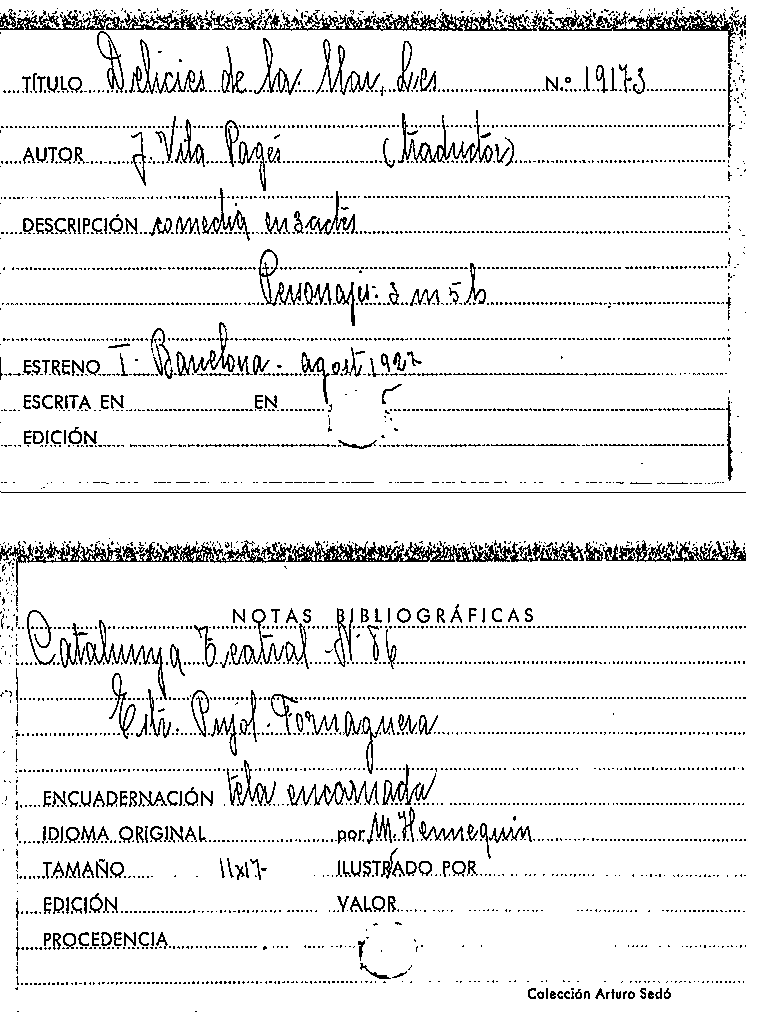 TÍTULO Delicies de la Mar, Les N.º 19173
AUTOR J. Vila Pagés (traductor)
DESCRIPCIÓN comedia en 3 actes
Personajes: 3 m 5 h
ESTRENO T. Barcelona - agost 1927
ESCRITA EN EN
EDICIÓN
NOTAS BIBLIOGRÁFICAS
Catalunya Teatral Nº 86
Edit. Pujol-Fornaguera
ENCUADERNACIÓN tela encarnada
IDIOMA ORIGINAL por M. Hennequin
TAMAÑO 11x17 ILUSTRADO POR
EDICIÓN VALOR
PROCEDENCIA
Colección Arturo Sedó